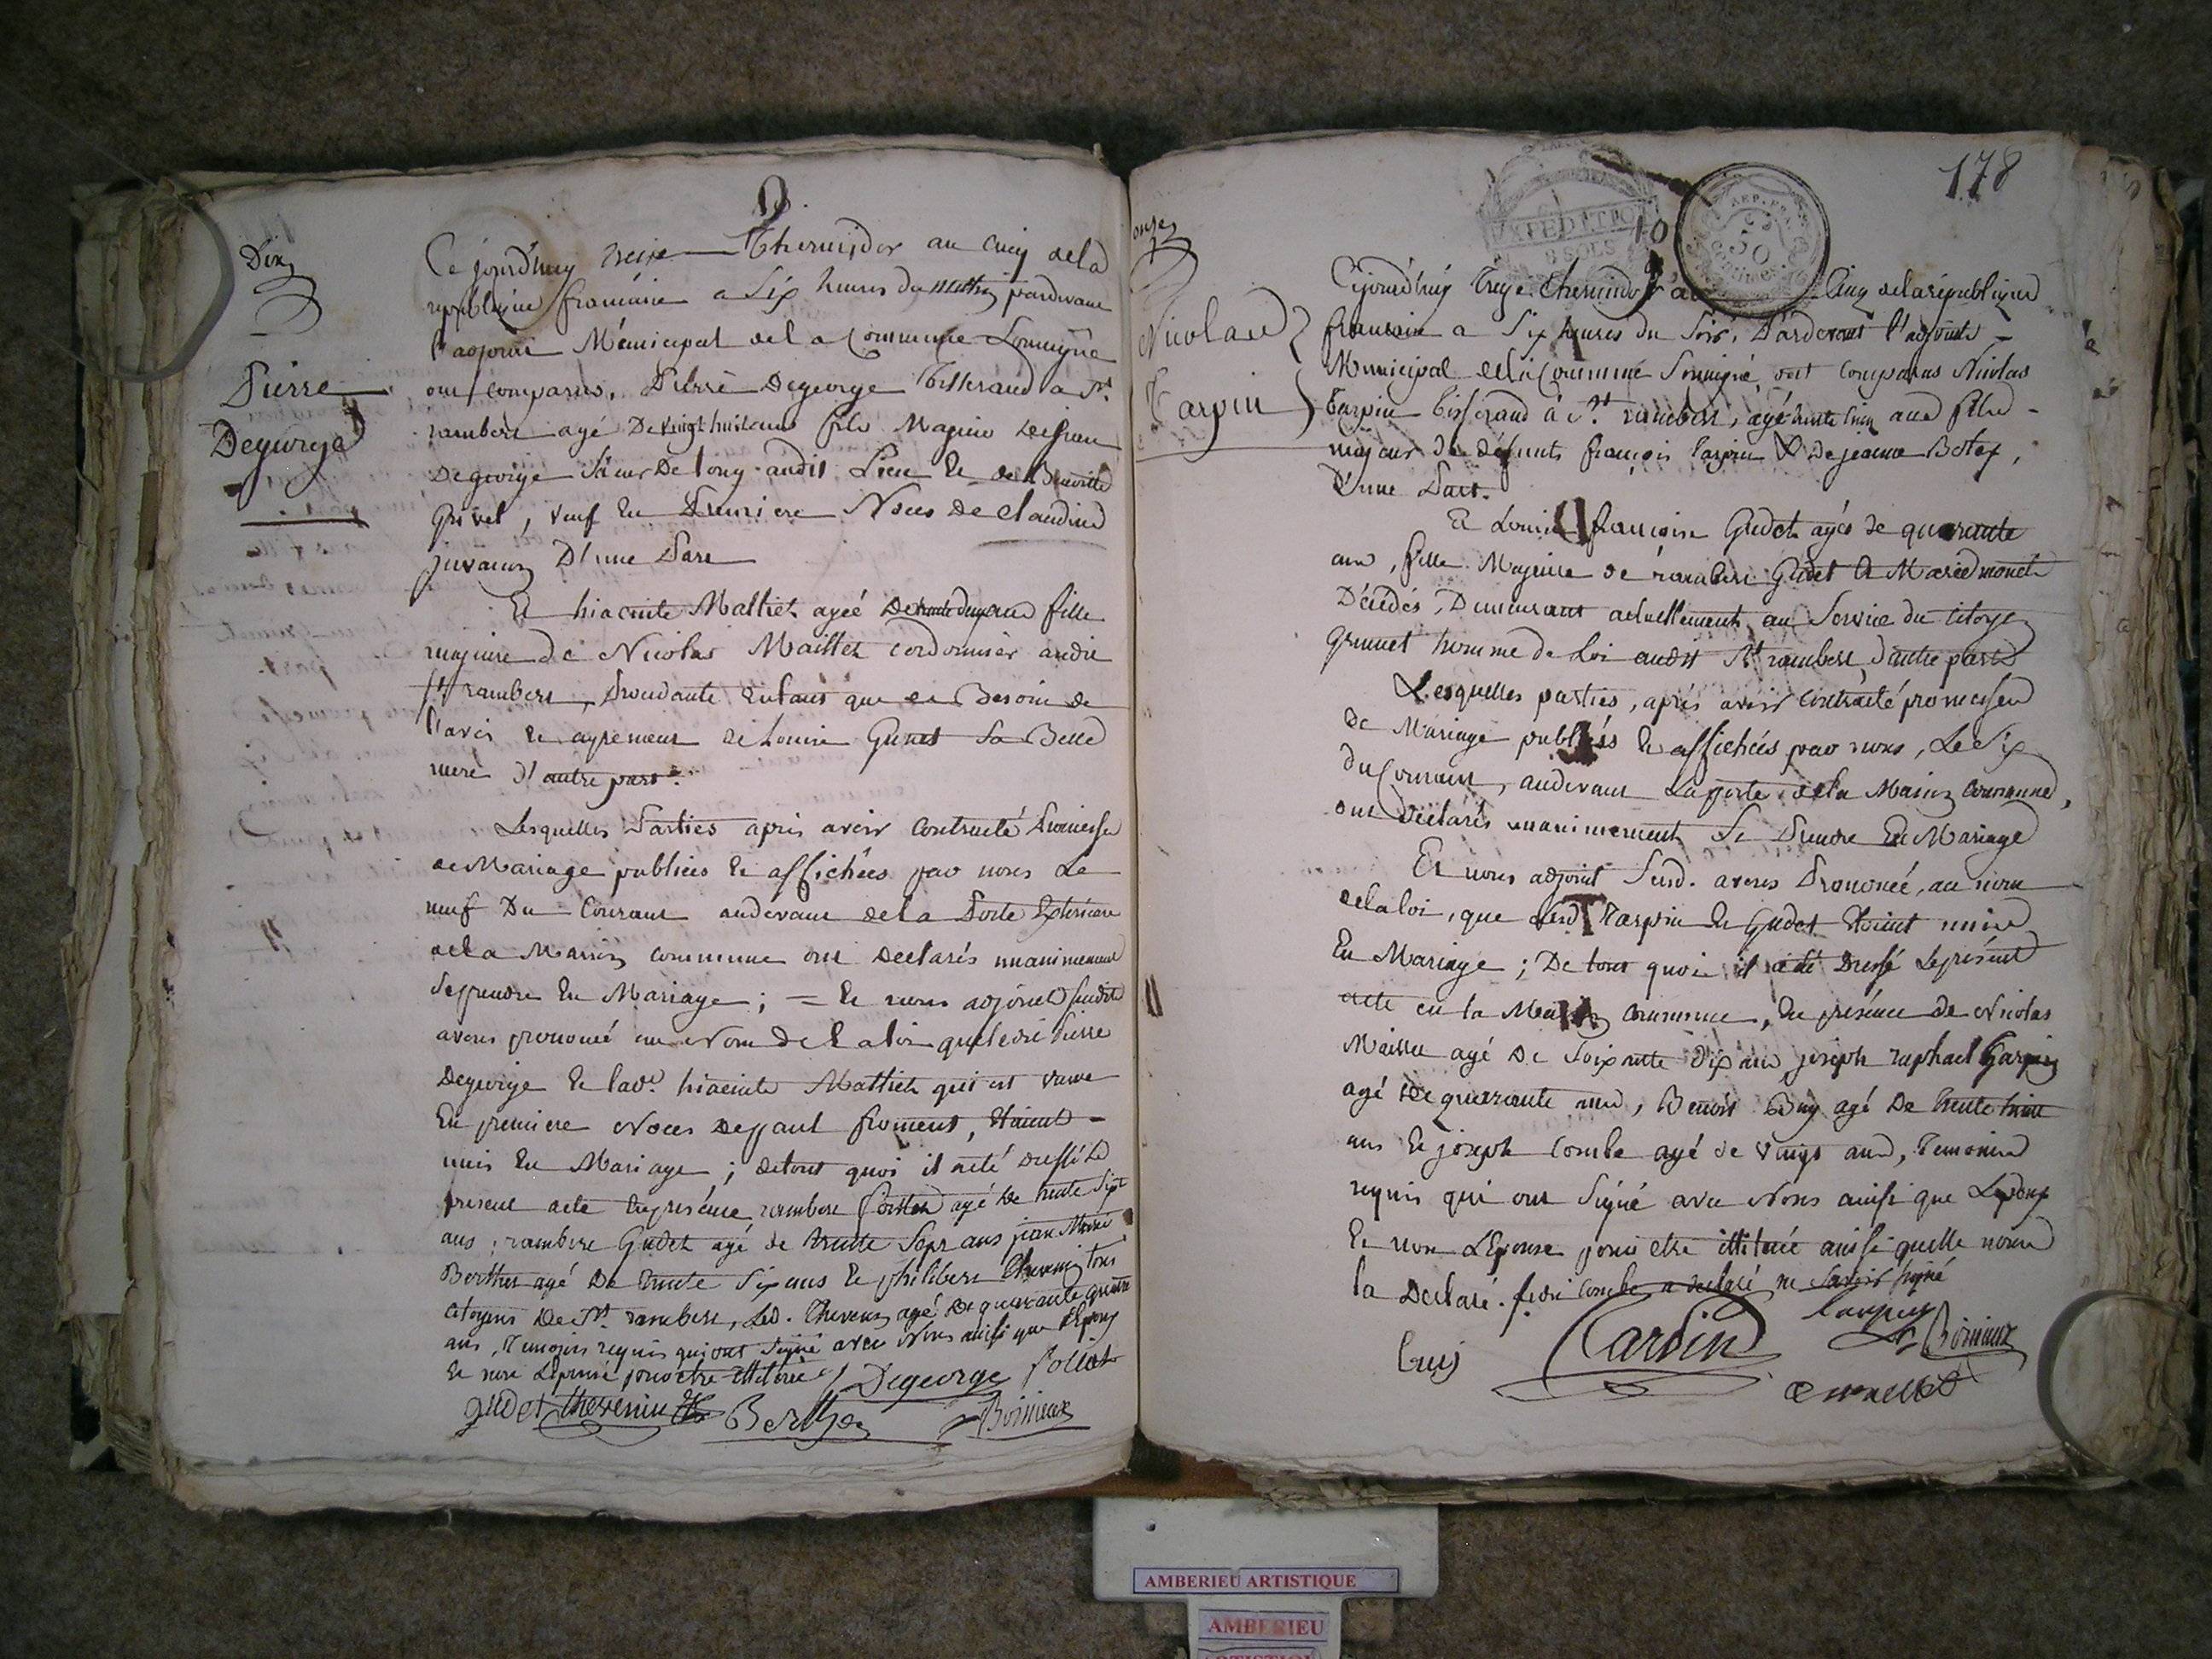 9
Dix
Pierre
Degeorge
Ce jourd'huy treize Thermidor an cinq de la
republique francaise a Six heures du mattin pardevant
l'adjoint Municipal de la Commune Soussigné
ont comparus, Pierre Degeorge Tisserand a St.
rambert agé De vingt huit ans fils Majeur de jean
Degeorge sieur De long audit Lieu Et de
Grivel, veuf En Premiere Noces De Claudine
juvanon D'une Part
Et hiacinte Malliet agée De trente deux ans fille
majeure de Nicolas Maillet cordonnier audit
St rambert, Procedante Entant que de Besoin de
l'avis Et agrement de Louise Gudet Sa Belle
mere d'autre part.
Lesquelles Parties après avoir Contracté Promesse
de Mariage publiées Et affichées par nous Le
neuf Du Courant audevant de la Porte Exterieure
de la Maison commune ont Declarés unanimement
se prendre En Mariage ; = Et nous adjoint susdit
avons prononcé au Nom de La loi que ledit Pierre
Degeorge Et lad.e hiacinte Malliet qui est veuve
En premiere Noces de paul froment, Etaient
unis En Mariage ; de tout quoi il a eté dressé Le
present acte En presence rambert Follet agé De trente Sept
ans, rambert Gudet agé de trente Sept ans jean Marie
Berthet agé De trente Six ans Et philibert Thevenin tous
citoyens De St. rambert, Led. Thevenin agé De quarante quatre
ans, Temoins requis qui ont Signé avec Nous ainsi que L'Epoux
Et non L'Epouse pour être illiterée / Degeorge follet
gudet thevenin Berthet Bonieux
178
EXPEDITION
8 SOLS
10
REP. FRA.
50
centimes
onze
Nicolas
Tarpin
Cejourd'huy treize Thermidor an Cinq de la republique
francaise a Six heures du Soir, Pardevant l'adjoint
Municipal de la Commune Soussigné, ont comparus Nicolas
Tarpin tisserand à St. rambert, agé trente cinq ans fils
majeur de défunts françois tarpin & de jeanne Botex,
d'une Part.
Et Louise françoise Gudet agée de quarante
ans, fille Majeure de rambert Gudet Et Marie monet
Décédés, Demeurant actuellement au Service du Citoyen
Grumet homme de Loi audit St rambert, d'autre part
Lesquelles parties, après avoir contracté promesse
de Mariage publiées Et affichées par nous, Le Six
du Courant, audevant La porte de la Maison Commune,
ont declarés unanimement Se Prendre En Mariage
Et nous adjoint Susd. avons Prononcé, au nom
de la loi, que lesd Tarpin Et Gudet Etoient unis
En Mariage ; De tout quoi il a été Dressé Le présent
acte en la Maison Commune, En présence de Nicolas
Maillet agé De Soixante Dix ans, joseph raphael Garpin
agé De quarante ans, Benoit Buy agé De trente huit
ans Et joseph Combe agé de vingt ans, Temoins
requis qui ont Signé avec Nous ainsi que L'Epoux
Et non L'Epouse pour etre illiterée ainsi quelle nous
la Declaré. ledit Combe a declaré ne Savoir signé
Tarpin
Bonieux
AMBERIEU ARTISTIQUE
AMBERIEU
ARTISTIQUE